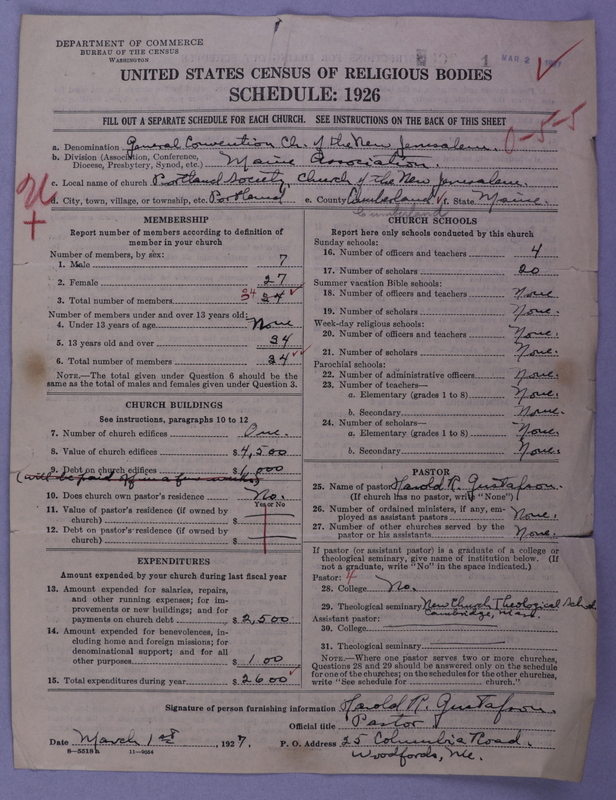 DEPARTMENT OF COMMERCE
BUREAU OF THE CENSUS
WASHINGTON
1 MAR 2
UNITED STATES CENSUS OF RELIGIOUS BODIES
SCHEDULE: 1926
FILL OUT A SEPARATE SCHEDULE FOR EACH CHURCH. SEE INSTRUCTIONS ON THE BACK OF THIS SHEET
a. Denomination General Convention Ch. of the New Jerusalem. 0-5-5
b. Division (Association, Conference, Diocese, Presbytery, Synod, etc.) Maine Association.
c. Local name of church Portland Society Church of the New Jerusalem.
d. City, town, village, or township, etc. Portland e. County Cumberland f. State Maine.
Cumberland
MEMBERSHIP
Report number of members according to definition of
member in your church
Number of members, by sex:
1. Male 7
2. Female 27
3. Total number of members 34 34
Number of members under and over 13 years old:
4. Under 13 years of age None
5. 13 years old and over 34
6. Total number of members 34
NOTE.—The total given under Question 6 should be the
same as the total of males and females given under Question 3.
CHURCH BUILDINGS
See instructions, paragraphs 10 to 12
7. Number of church edifices One.
8. Value of church edifices $4,500
9. Debt on church edifices $1,000
(will be paid off in a few weeks)
10. Does church own pastor's residence No.
Yes or No
11. Value of pastor's residence (if owned by
church) $
12. Debt on pastor's residence (if owned by
church) $
EXPENDITURES
Amount expended by your church during last fiscal year
13. Amount expended for salaries, repairs,
and other running expenses; for im-
provements or new buildings; and for
payments on church debt $2,500
14. Amount expended for benevolences, in-
cluding home and foreign missions; for
denominational support; and for all
other purposes $100
15. Total expenditures during year $2600
CHURCH SCHOOLS
Report here only schools conducted by this church
Sunday schools:
16. Number of officers and teachers 4
17. Number of scholars 20
Summer vacation Bible schools:
18. Number of officers and teachers None
19. Number of scholars None.
Week-day religious schools:
20. Number of officers and teachers None.
21. Number of scholars None.
Parochial schools:
22. Number of administrative officers None.
23. Number of teachers—
a. Elementary (grades 1 to 8) None.
b. Secondary None.
24. Number of scholars—
a. Elementary (grades 1 to 8) None.
b. Secondary None.
PASTOR
25. Name of pastor Harold R. Gustafson.
(If church has no pastor, write "None")
26. Number of ordained ministers, if any, em-
ployed as assistant pastors None.
27. Number of other churches served by the
pastor or his assistants None.
If pastor (or assistant pastor) is a graduate of a college or
theological seminary, give name of institution below. (If
not a graduate, write "No" in the space indicated.)
Pastor: 4
28. College No.
29. Theological seminary New Church Theological School
Cambridge, Mass.
Assistant pastor:
30. College
31. Theological seminary
NOTE.—Where one pastor serves two or more churches,
Questions 28 and 29 should be answered only on the schedule
for one of the churches; on the schedules for the other churches,
write "See schedule for church."
Signature of person furnishing information Harold R. Gustafson.
Official title Pastor
Date March 1st, 1927. P. O. Address 25 Columbia Road.
Woodfords, Me.
8—5518 a 11—9054